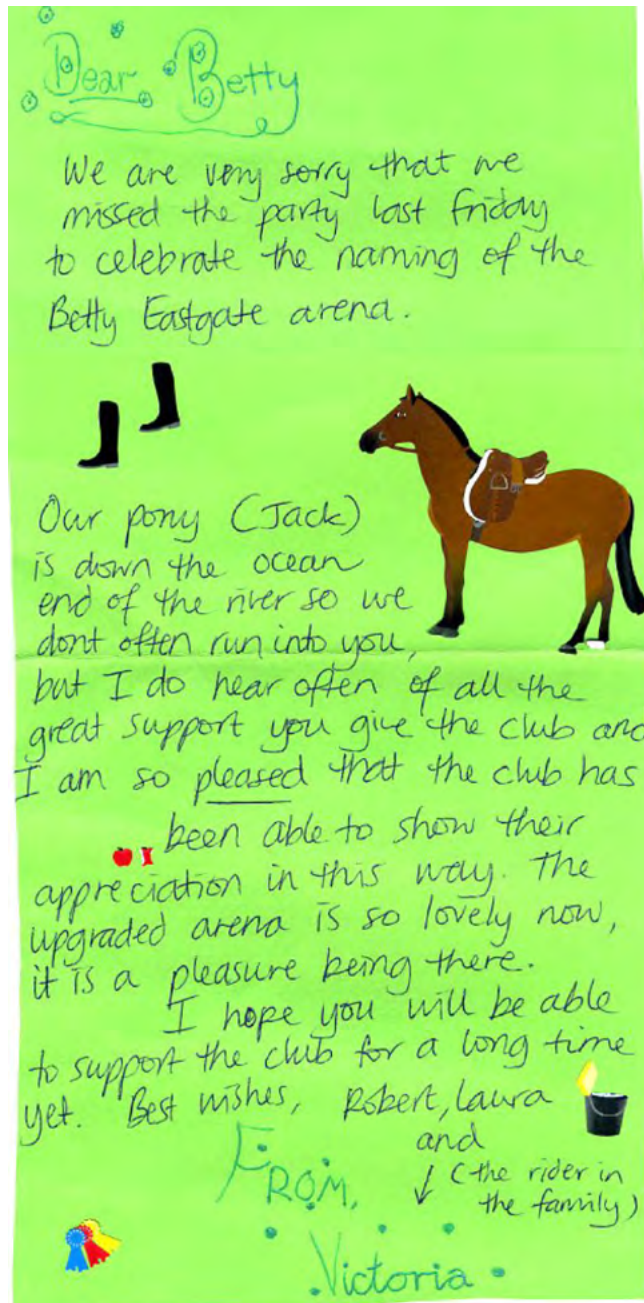 Dear Betty
We are very sorry that we
missed the party last friday
to celebrate the naming of the
Betty Eastgate arena.
Our pony (Jack)
is down the ocean
end of the river so we
dont often run into you,
but I do hear often of all the
great support you give the club and
I am so pleased that the club has
been able to show their
appreciation in this way. The
upgraded arena is so lovely now,
it is a pleasure being there.
I hope you will be able
to support the club for a long time
yet. Best wishes, Robert, Laura
and
(the rider in
the family)
FROM,
Victoria